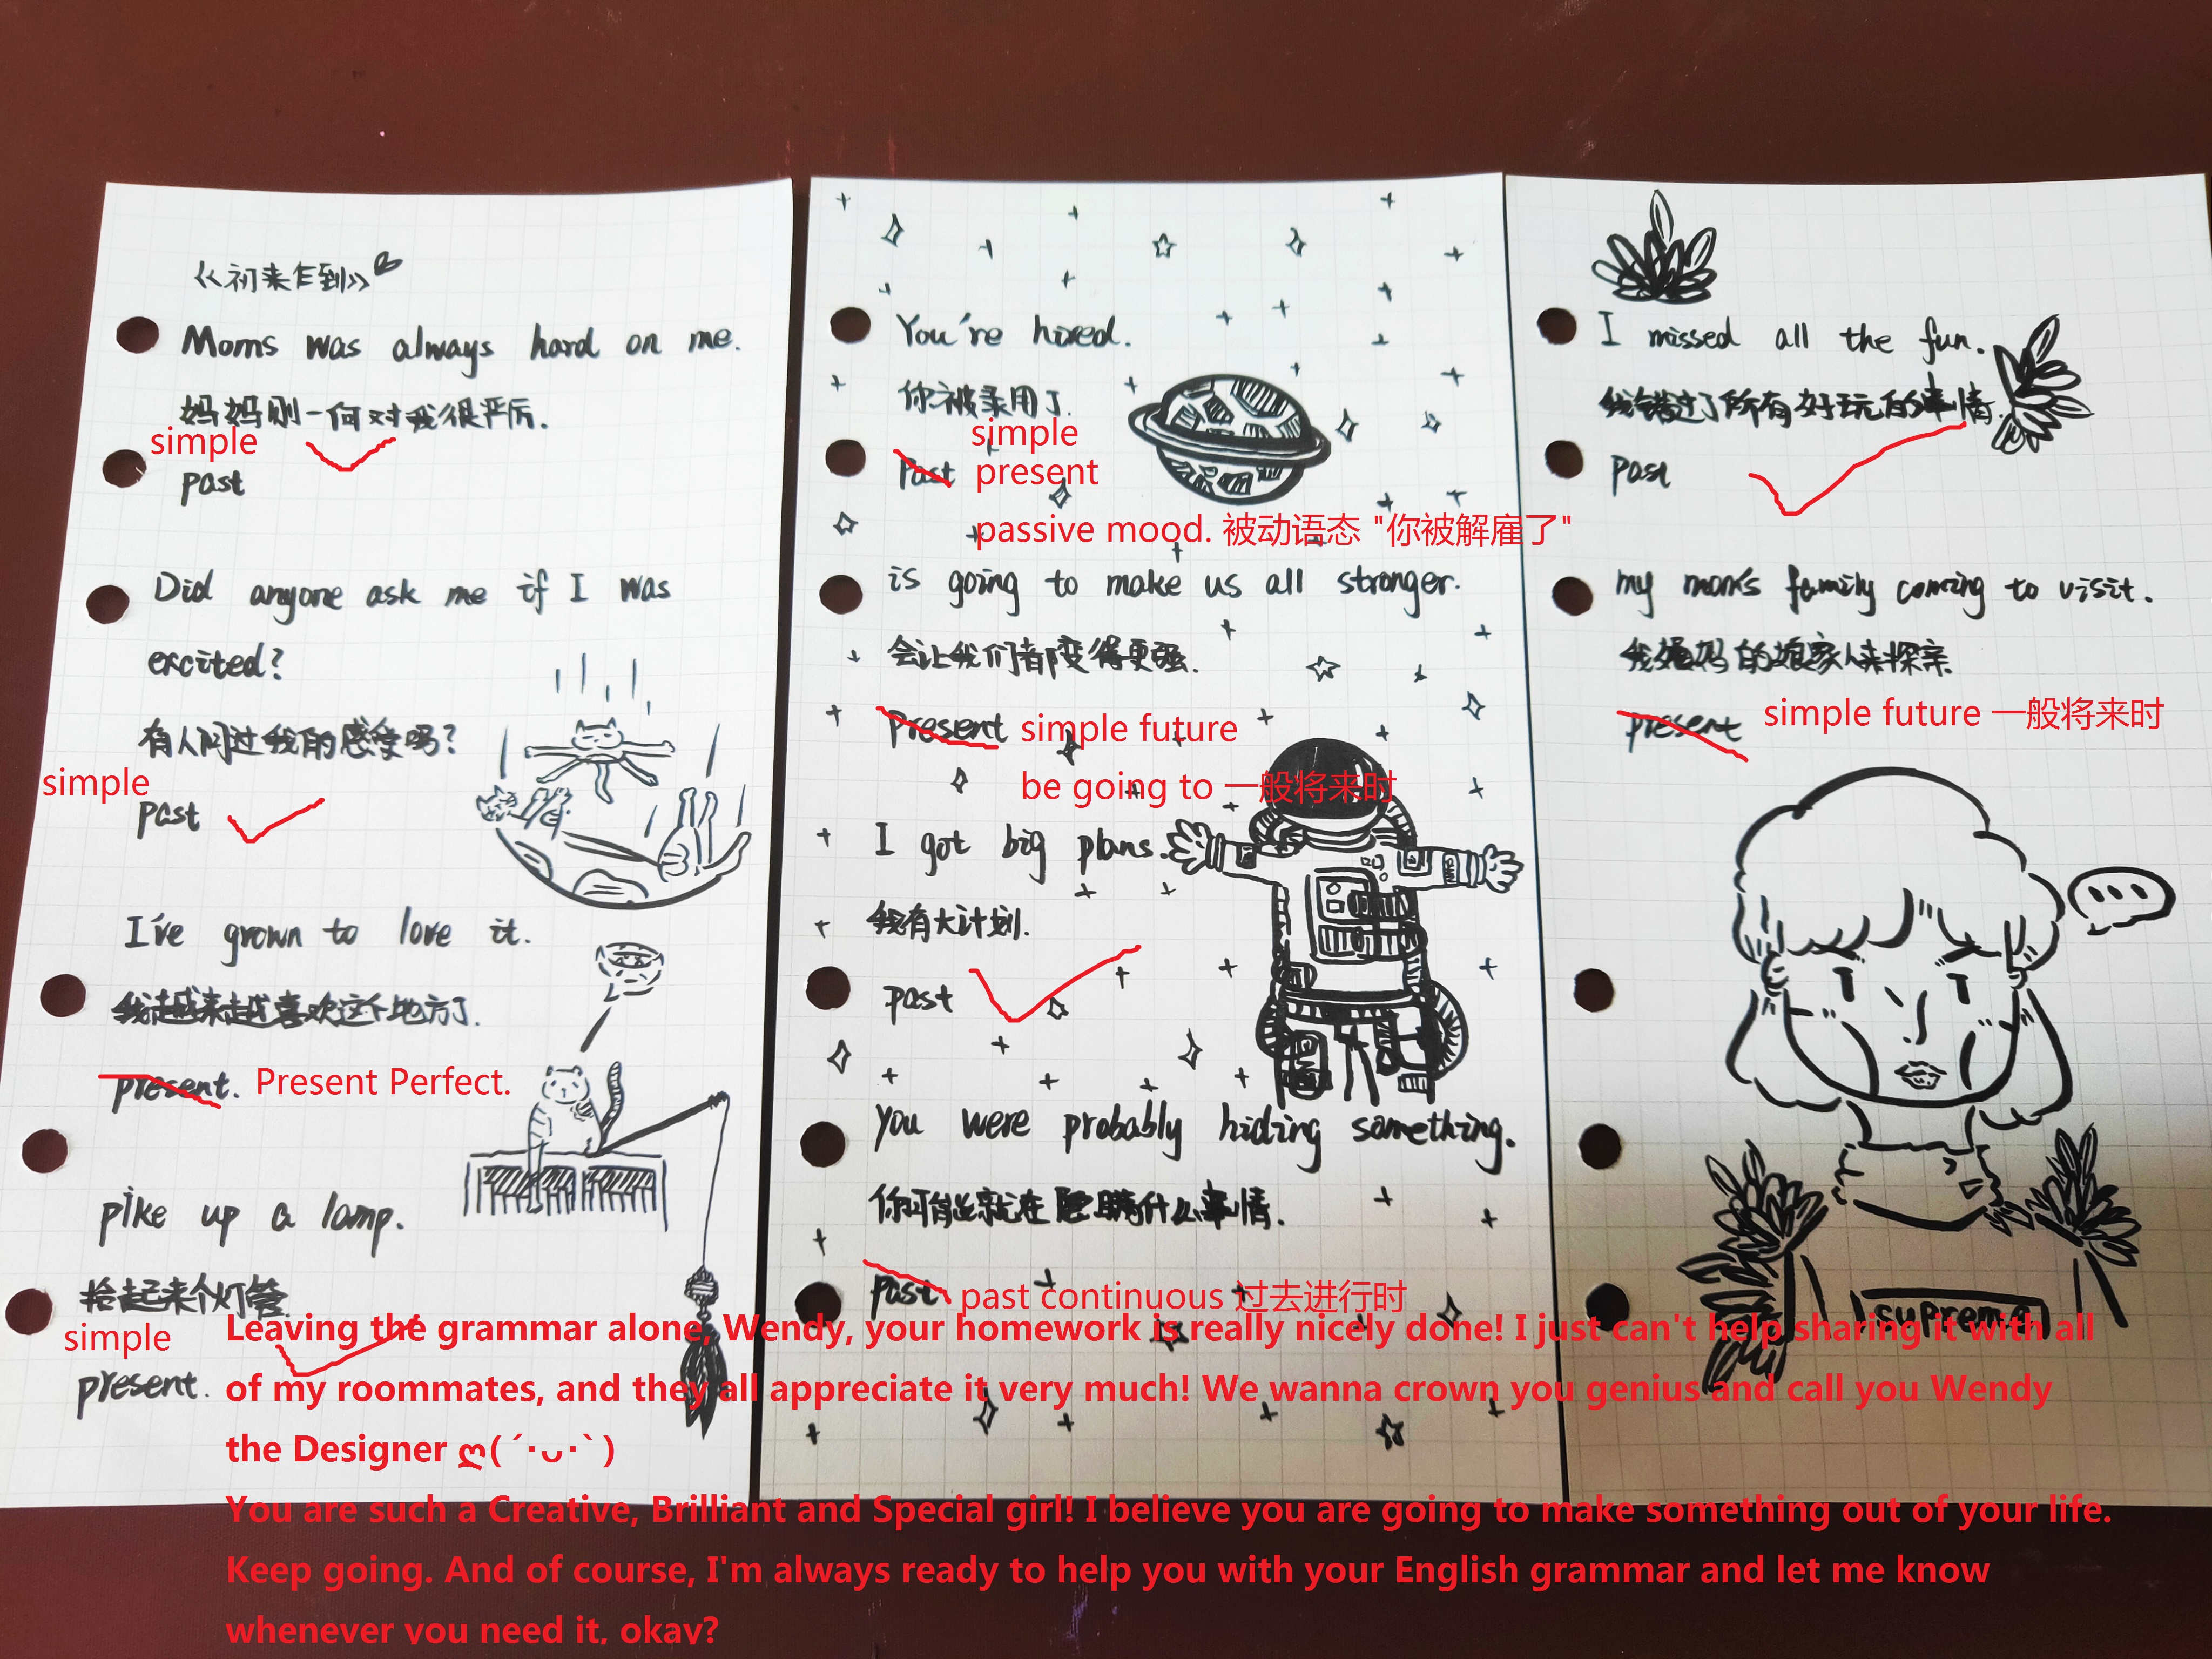 《初来乍到》
Moms was always hard on me.
妈妈则一何对我很严厉.
simple
past
Did anyone ask me if I was
excited?
有人问过我的感受吗?
simple
past
I've grown to love it.
我越来越喜欢这个地方了.
present. Present Perfect.
pike up a lamp.
拾起来个灯管.
simple
present.
You're hired.
你被录用了.
simple
Past present
passive mood. 被动语态 "你被解雇了"
is going to make us all stronger.
会让我们都变得更强.
Present simple future
be going to 一般将来时
I got big plans.
我有大计划.
past
you were probably hiding something.
你可能就在隐瞒什么事情.
past past continuous 过去进行时
I missed all the fun.
我错过了所有好玩的事情.
Past
my mom's family coming to visit.
我妈妈的娘家人来探亲.
present simple future 一般将来时
supreme
Leaving the grammar alone, Wendy, your homework is really nicely done! I just can't help sharing it with all
of my roommates, and they all appreciate it very much! We wanna crown you genius and call you Wendy
the Designer ღ( ´･ᴗ･` )
You are such a Creative, Brilliant and Special girl! I believe you are going to make something out of your life.
Keep going. And of course, I'm always ready to help you with your English grammar and let me know
whenever you need it, okay?